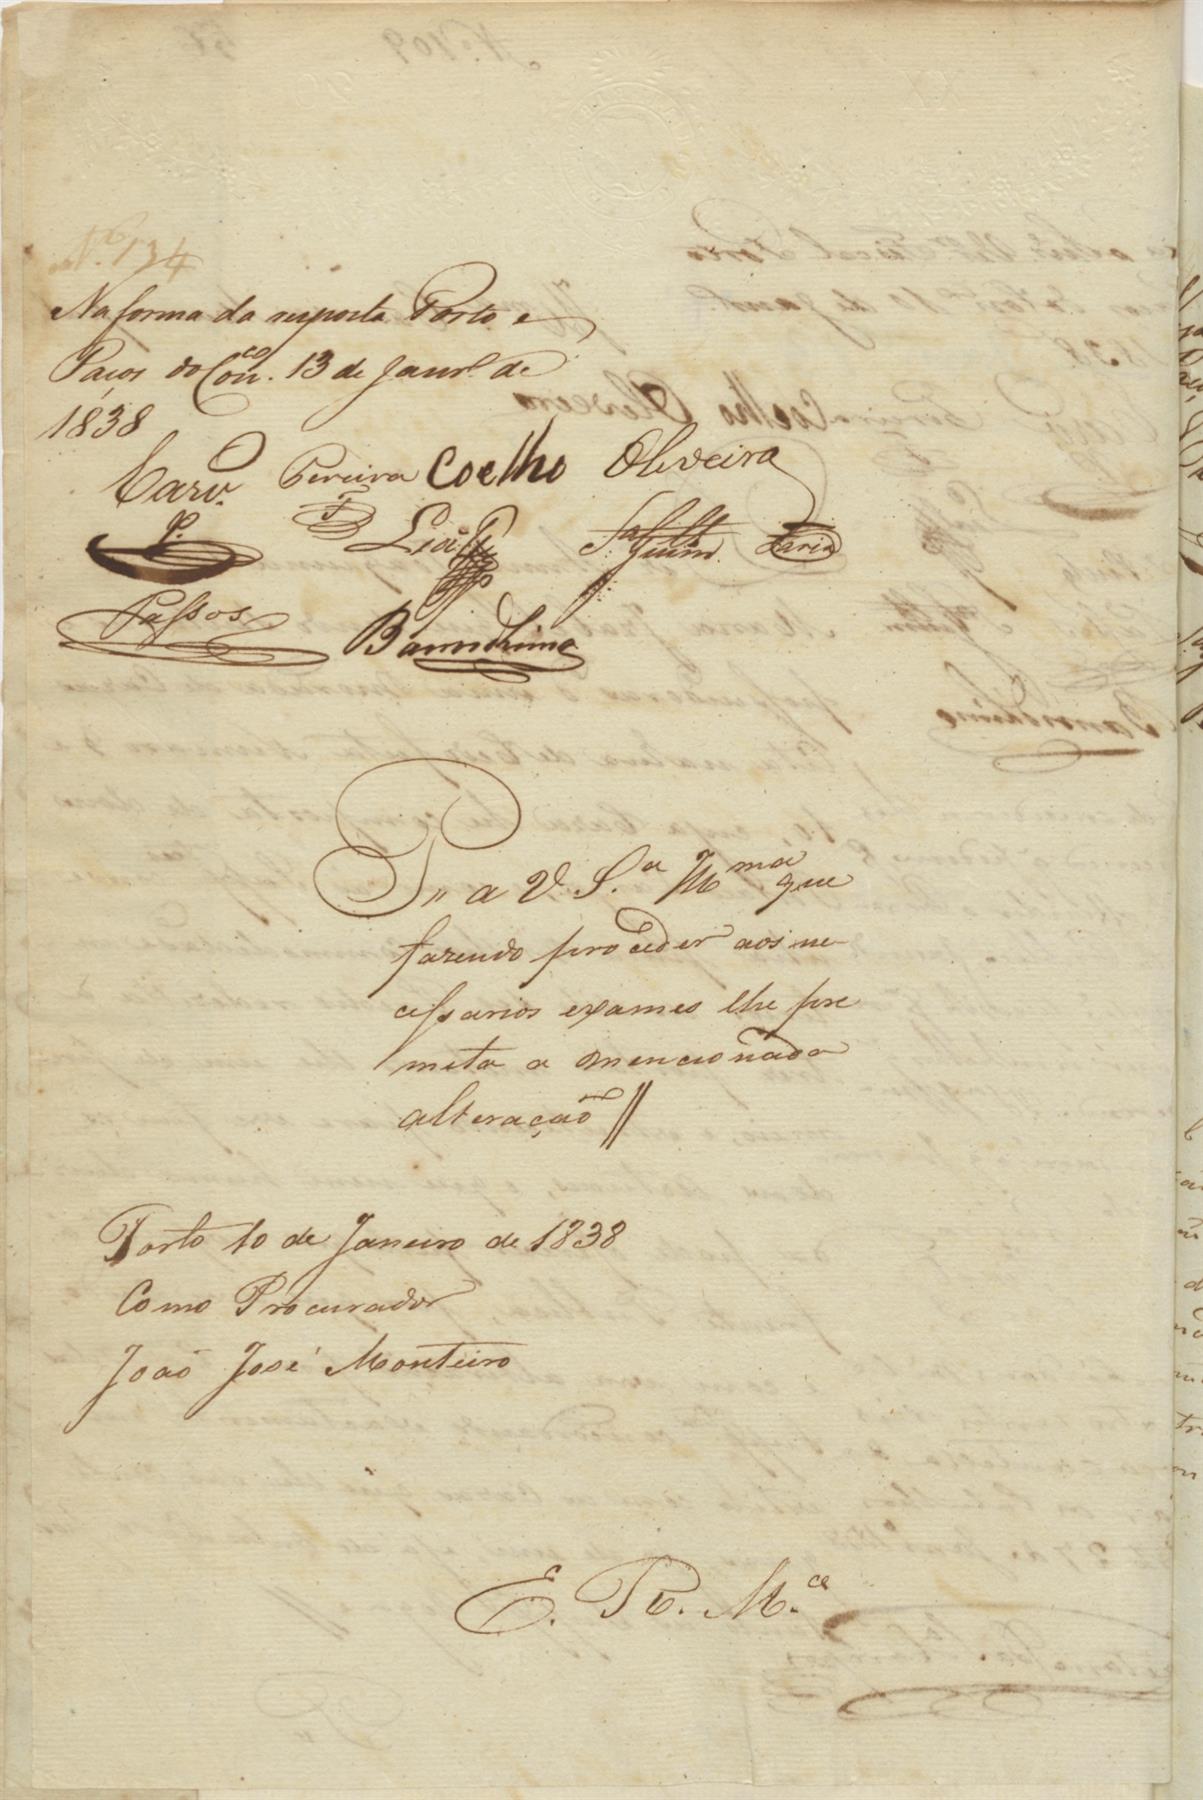 N.º 134
Na forma da resposta Porto e
Paços do Con.co 13 de Janr.º de
1838
Carv.º
Pereira Coelho Oliveira
P. Faria
Passos
P.. a V. S.ª Illma que
fazendo proceder aos ne
cessarios exames lhe pre
meta a mencionada
alteração //
Porto 10 de Janeiro de 1838
Como Procurador
João José Monteiro
E. R. M.ce